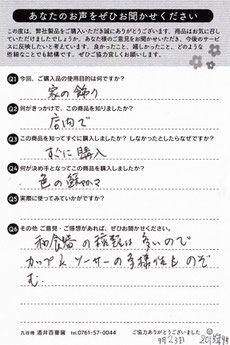 あなたのお声をぜひお聞かせください
この度は、弊社製品をご購入いただき誠にありがとうございます。商品はお気に召し
ていただけましたでしょうか。あなた様のご意見をお聞かせいただき、今後のサービ
スに反映したいと考えています。良かったこと、嬉しかったこと、どのような
些細なことでも結構です。ぜひご協力宜しくお願いします。
Q1 今回、ご購入品の使用目的は何ですか?
家の飾り
Q2 何がきっかけで、この商品を知りましたか?
店内で
Q3 この商品を知ってすぐに購入しましたか? しなかったとしたらなぜですか?
すぐに購入
Q4 何が決め手となってこの商品を購入しましたか?
色の鮮やかさ
Q5 実際に使ってみていかがですか?
Q6 その他 ご意見・ご感想があれば、ぜひお聞かせください。
和食器の種類は多いので
カップ&ソーサーの多様性ものぞ
む.
九谷焼 酒井百華園 tel.0761-57-0044
ご協力ありがとうございました
9月23日